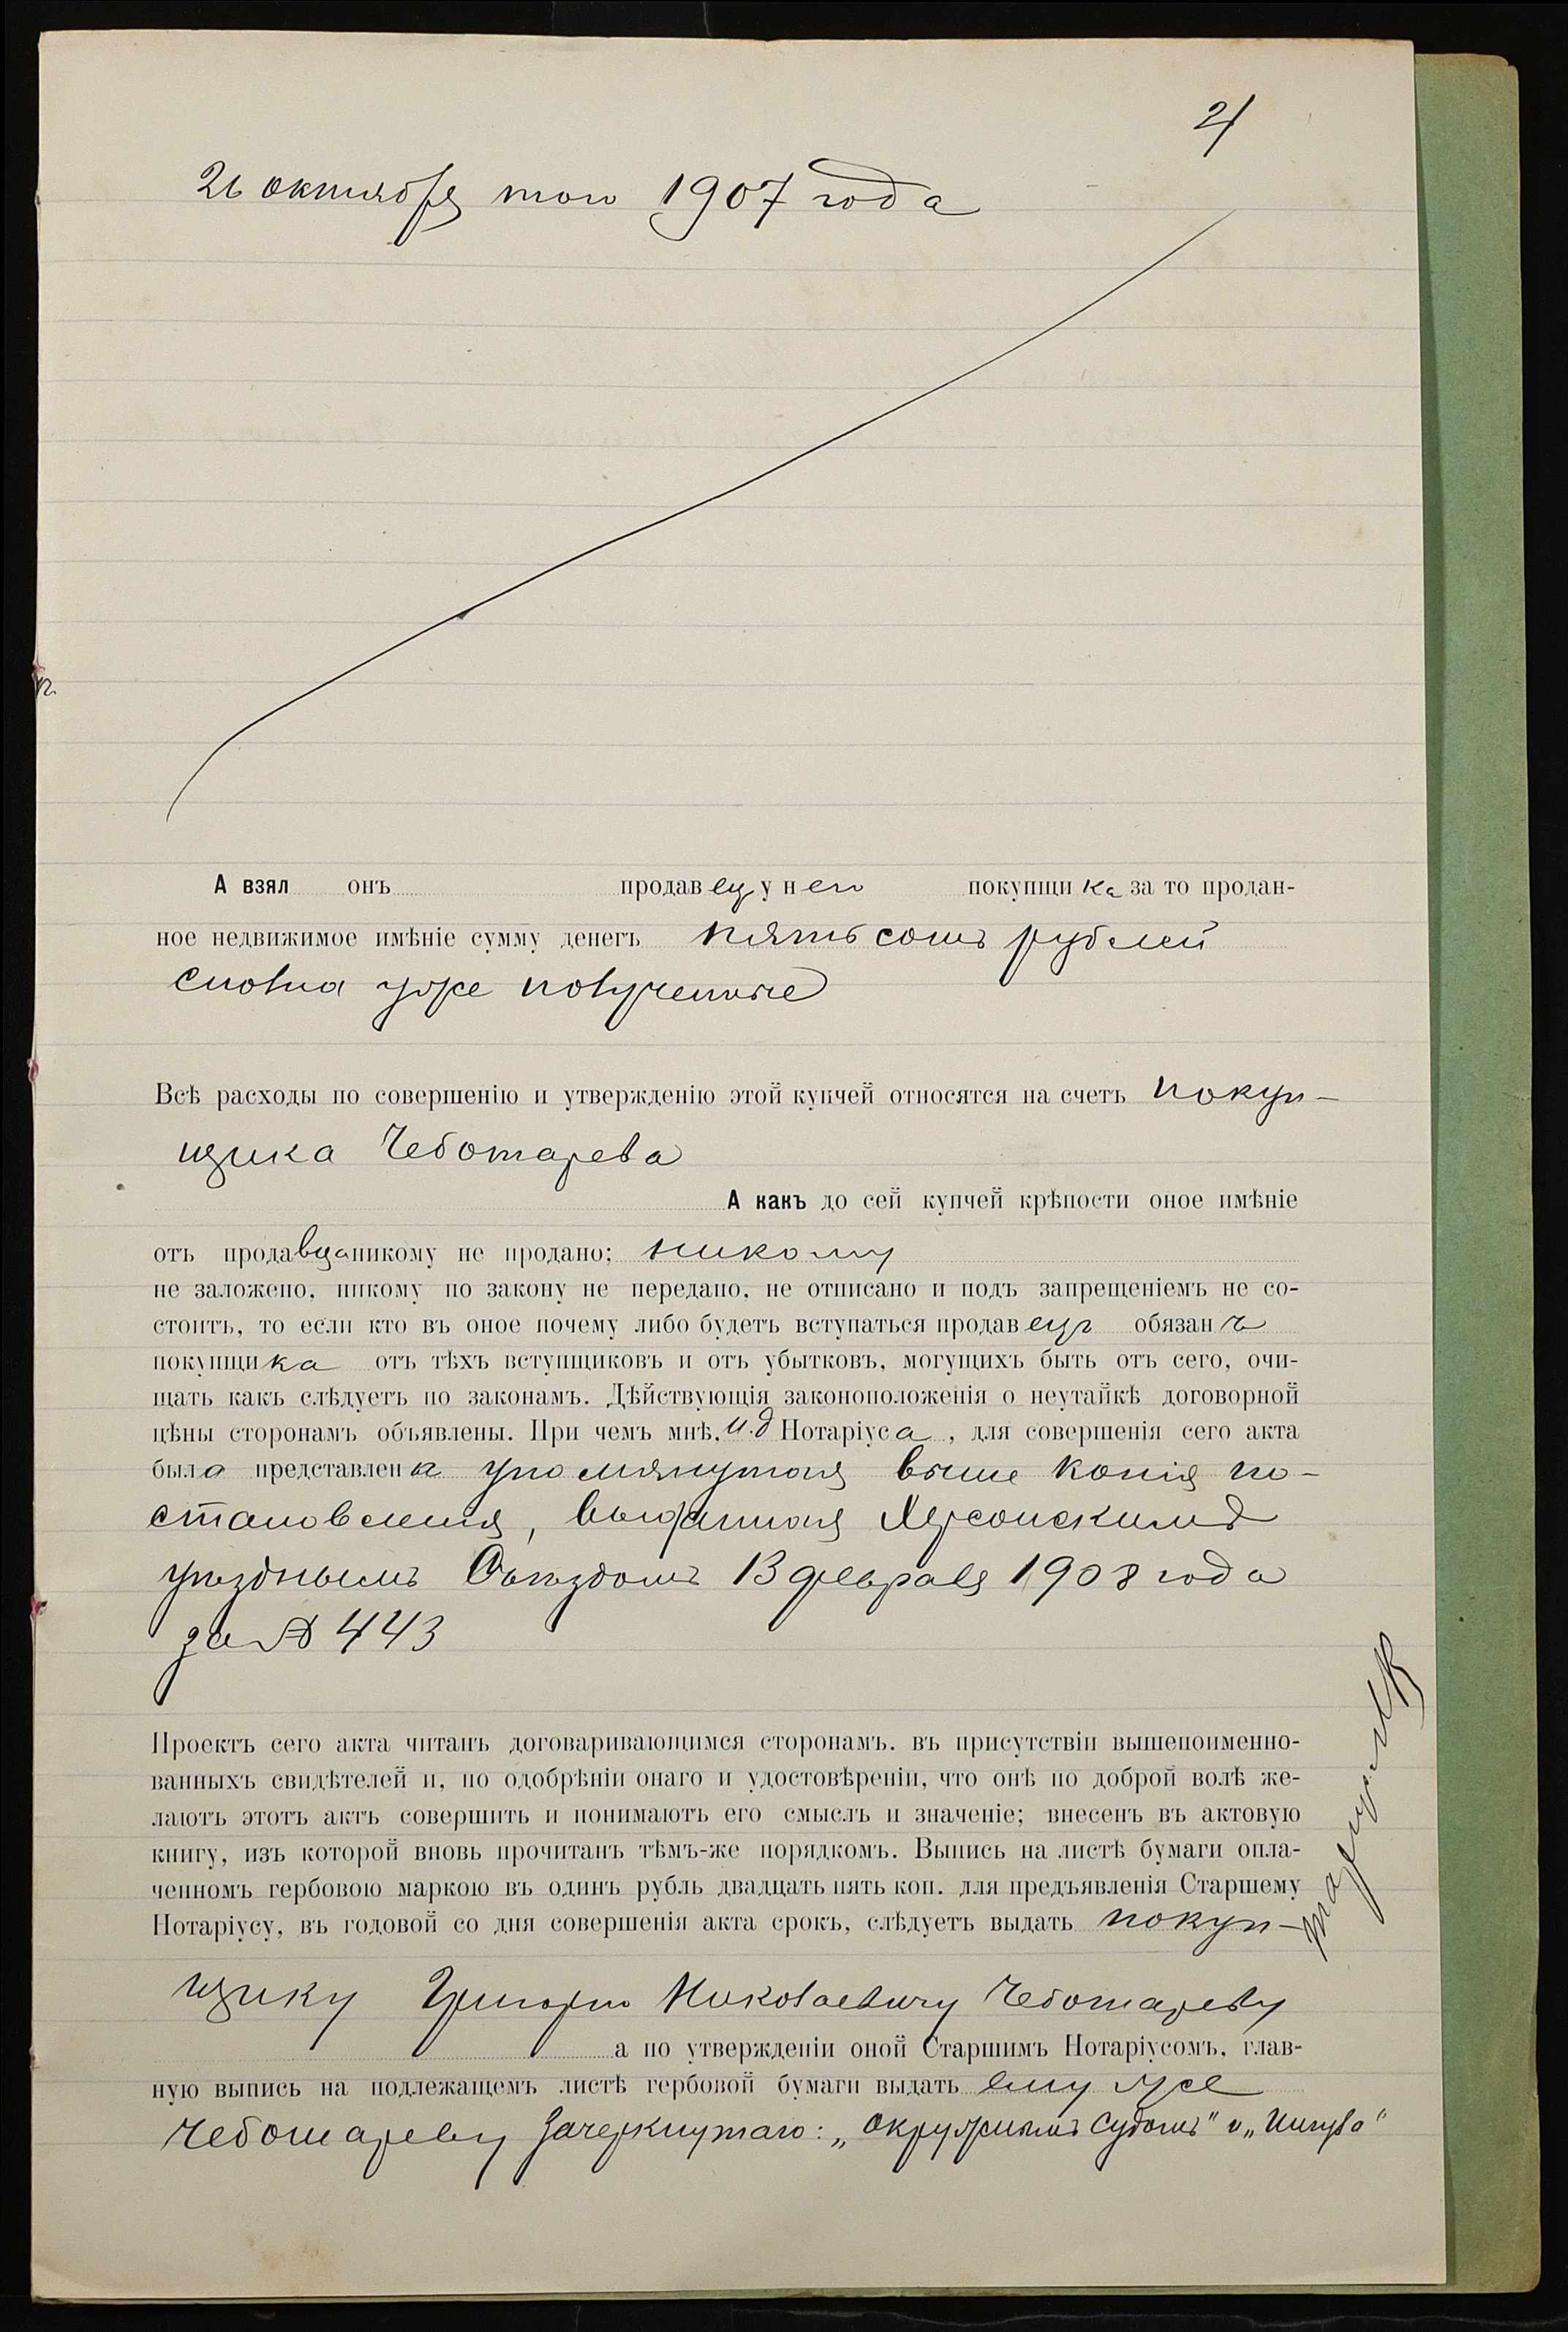 21
26 октября того 1907 года
А взял онъ продавецъ у него покупщика за то продан-
ное недвижимое имѣніе сумму денегъ пятьсотъ рублей
сполна уже полученные
Всѣ расходы по совершенію и утвержденію этой купчей относятся на счетъ покуп-
щика Чеботарева
А какъ до сей купчей крѣпости оное имѣніе
отъ продавца никому не продано; никому
не заложено, никому по закону не передано, не отписано и подъ запрещеніемъ не со-
стоитъ, то если кто въ оное почему либо будетъ вступаться продавецъ обязанъ
покупщика отъ тѣхъ вступщиковъ и отъ убытковъ, могущихъ быть отъ сего, очи-
щать какъ слѣдуетъ по законамъ. Дѣйствующія законоположенія о неутайкѣ договорной
цѣны сторонамъ объявлены. При чемъ мнѣ, И.д Нотаріуса, для совершенія сего акта
была представлена упомянутая выше копія по-
становленія, выданная Херсонскимъ
уѣзднымъ Съѣздомъ 13 февраля 1908 года
за № 443
Проектъ сего акта читанъ договаривающимся сторонамъ, въ присутствіи вышепоименно-
ванныхъ свидѣтелей и, по одобрѣніи онаго и удостовѣреніи, что онѣ по доброй волѣ же-
лаютъ этотъ актъ совершить и понимаютъ его смыслъ и значеніе; внесенъ въ актовую
книгу, изъ которой вновь прочитанъ тѣмъ-же порядкомъ. Выпись на листѣ бумаги опла-
ченномъ гербовою маркою въ одинъ рубль двадцать пять коп. для предъявленія Старшему
Нотаріусу, въ годовой со дня совершенія акта срокъ, слѣдуетъ выдать покуп-
щику Григорію Николаевичу Чеботареву
а по утвержденіи оной Старшимъ Нотаріусомъ, глав-
ную выпись на подлежащемъ листѣ гербовой бумаги выдать ему же
Чеботареву Зачеркнутаго: „Окружнымъ Судомъ" и